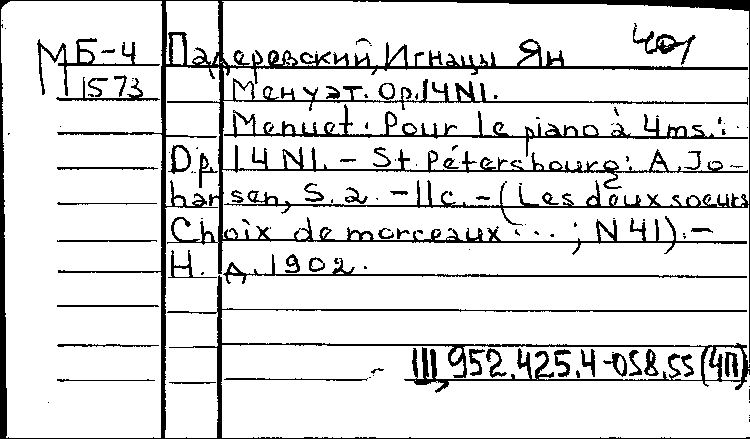 401
М Б-4 Падеревский, Игнацы Ян
1573 Менуэт. Op.14N1.
Menuet: Pour le piano à 4ms.:
Op.14N1. – St. Pétersbourg: A. Jo-
hansen, S.a. – 11c. – (Les deux soeurs
Choix de morceaux ...; N41). –
Н. д. 1902.
III, 952.425.4-058.55 (4П)